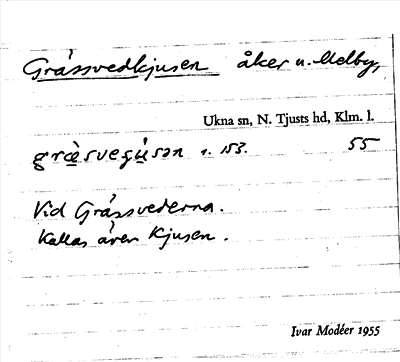 Grässvedkjusen åker u. Melby,
Ukna sn, N. Tjusts hd, Klm. l.
s. 153. 55
Vid Grässvederna.
Kallas även Kjusen.
Ivar Modéer 1955